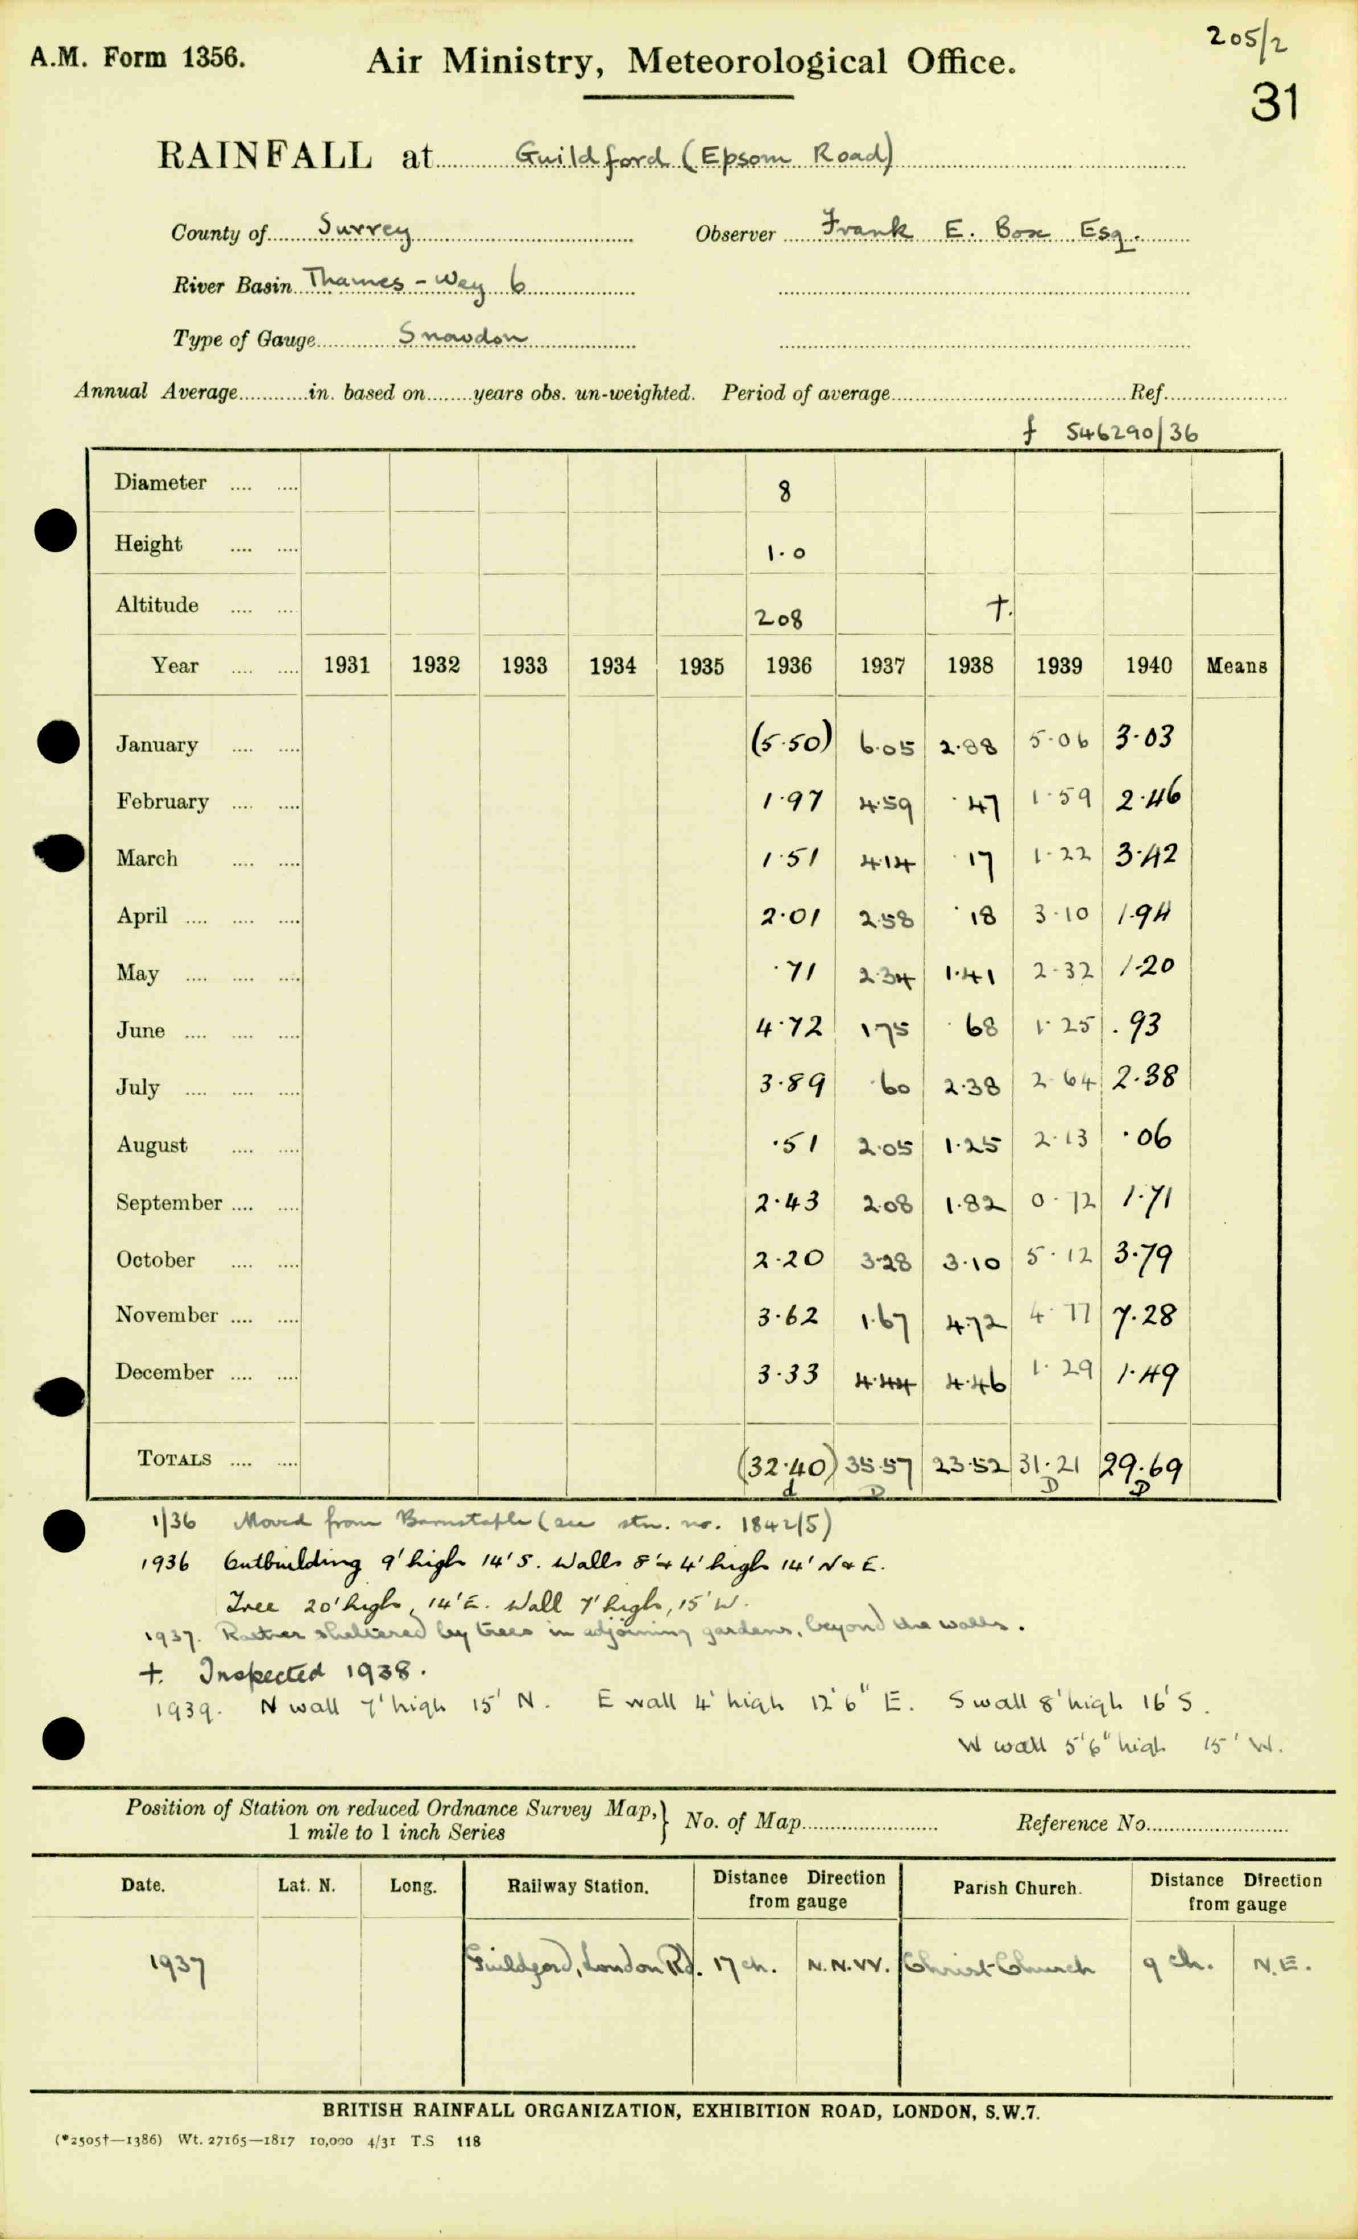 205/2
A.M. Form 1356. Air Ministry, Meteorological Office.
31
RAINFALL at Guildford (Epsom Road)
County of Surrey Observer Frank E. Box Esq.
River Basin Thames - Wey 6
Type of Gauge Snowdon
Annual Average in. based on years obs. un-weighted. Period of average Ref.
f 546290/36
Diameter 8
Height 1.0
Altitude 208 †.
Year 1931 1932 1933 1934 1935 1936 1937 1938 1939 1940 Means
January (5.50) 6.05 2.88 5.06 3.03
February 1.97 4.59 .47 1.59 2.46
March 1.51 4.14 .17 1.22 3.42
April 2.01 2.58 .18 3.10 1.94
May .71 2.34 1.41 2.32 1.20
June 4.72 1.75 .68 1.25 .93
July 3.89 .60 2.38 2.64 2.38
August .51 2.05 1.25 2.13 .06
September 2.43 2.08 1.82 0.72 1.71
October 2.20 3.28 3.10 5.12 3.79
November 3.62 1.67 4.72 4.77 7.28
December 3.33 4.44 4.46 1.29 1.49
TOTALS (32.40) 35.57 23.52 31.21 29.69
d D D D
1/36 Moved from Barnstaple (see stn. no. 1842/5)
1936 Outbuilding 9' high 14' S. Walls 8' + 4' high 14' N & E.
Tree 20' high, 14' E. Wall 7' high, 15' W.
1937. Rather sheltered by trees in adjoining gardens, beyond the walls.
†. Inspected 1938.
1939. N wall 7' high 15' N. E wall 4' high 12'6" E. S wall 8' high 16' S.
W wall 5'6" high 15' W.
Position of Station on reduced Ordnance Survey Map, } No. of Map Reference No.
1 mile to 1 inch Series
Date. Lat. N. Long. Railway Station. Distance Direction from gauge Parish Church. Distance Direction from gauge
1937 Guildford, London Rd. 17 ch. N.N.W. Christ Church 9 ch. N.E.
BRITISH RAINFALL ORGANIZATION, EXHIBITION ROAD, LONDON, S.W.7.
(*2505†—1386) Wt. 27165—1817 10,000 4/31 T.S 118